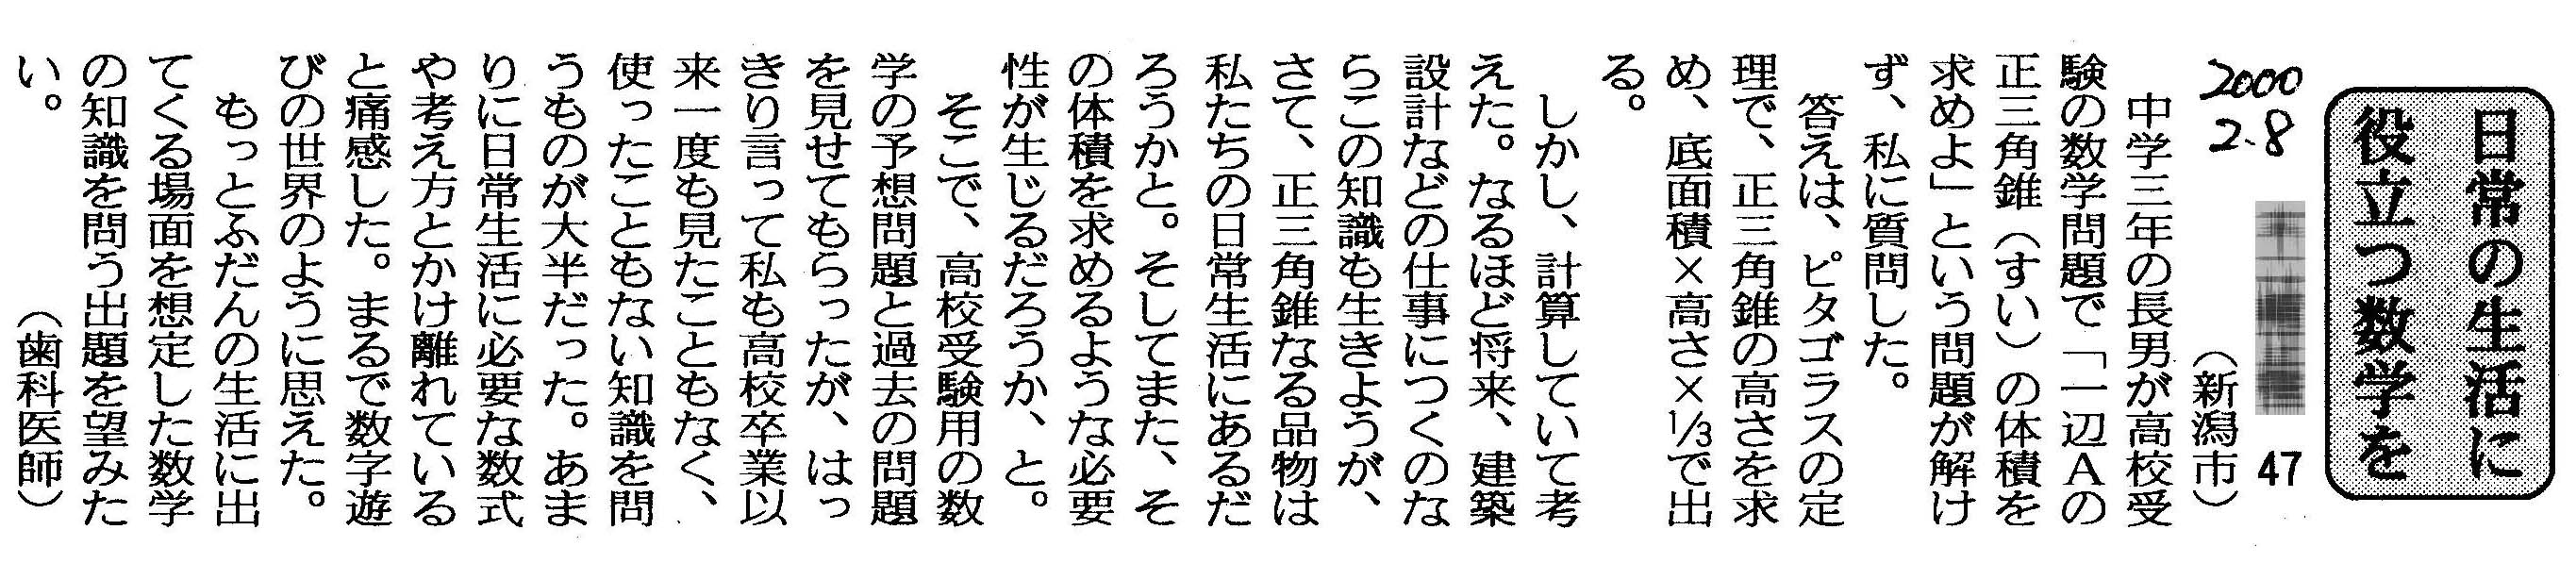 日常の生活に
役立つ数学を
47
(新潟市)
2000
2.8
中学三年の長男が高校受
験の数学問題で「一辺Aの
正三角錐(すい)の体積を
求めよ」という問題が解け
ず、私に質問した。
答えは、ピタゴラスの定
理で、正三角錐の高さを求
め、底面積×高さ×1/3で出
る。
しかし、計算していて考
えた。なるほど将来、建築
設計などの仕事につくのな
らこの知識も生きようが、
さて、正三角錐なる品物は
私たちの日常生活にあるだ
ろうかと。そしてまた、そ
の体積を求めるような必要
性が生じるだろうか、と。
そこで、高校受験用の数
学の予想問題と過去の問題
を見せてもらったが、はっ
きり言って私も高校卒業以
来一度も見たこともなく、
使ったこともない知識を問
うものが大半だった。あま
りに日常生活に必要な数式
や考え方とかけ離れている
と痛感した。まるで数字遊
びの世界のように思えた。
もっとふだんの生活に出
てくる場面を想定した数学
の知識を問う出題を望みた
い。
(歯科医師)